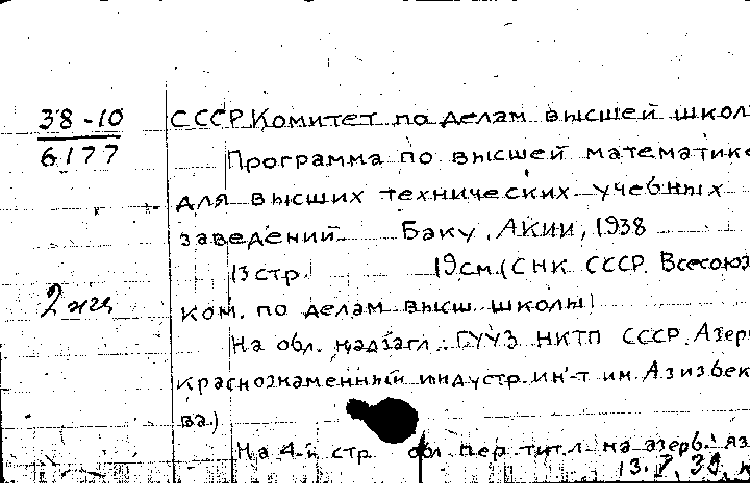 38-10
6177
СССР Комитет по делам высшей школ
Программа по высшей математике
для высших технических учебных
заведений Баку, АКИИ, 1938
13 стр. 19 см. (СНК СССР. Всесоюз
2 экз
ком. по делам высш. школы)
На обл. надзагл.: ГУУЗ НКТП СССР. Азер
краснознаменный индустр. ин-т им. Азизбек
ва.)
На 4-й стр. обл. пер. тит. л. на азерб. яз
13.V.39.